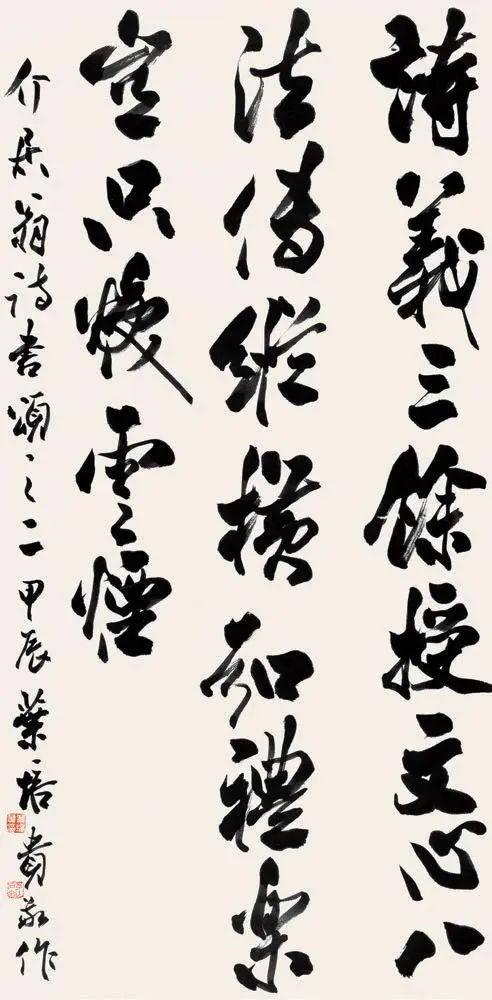 詩義三餘授文心八
法傳縱橫知禮樂
豈只雲煙
介居翁詩書頌之二 甲辰 葉培貴敬作